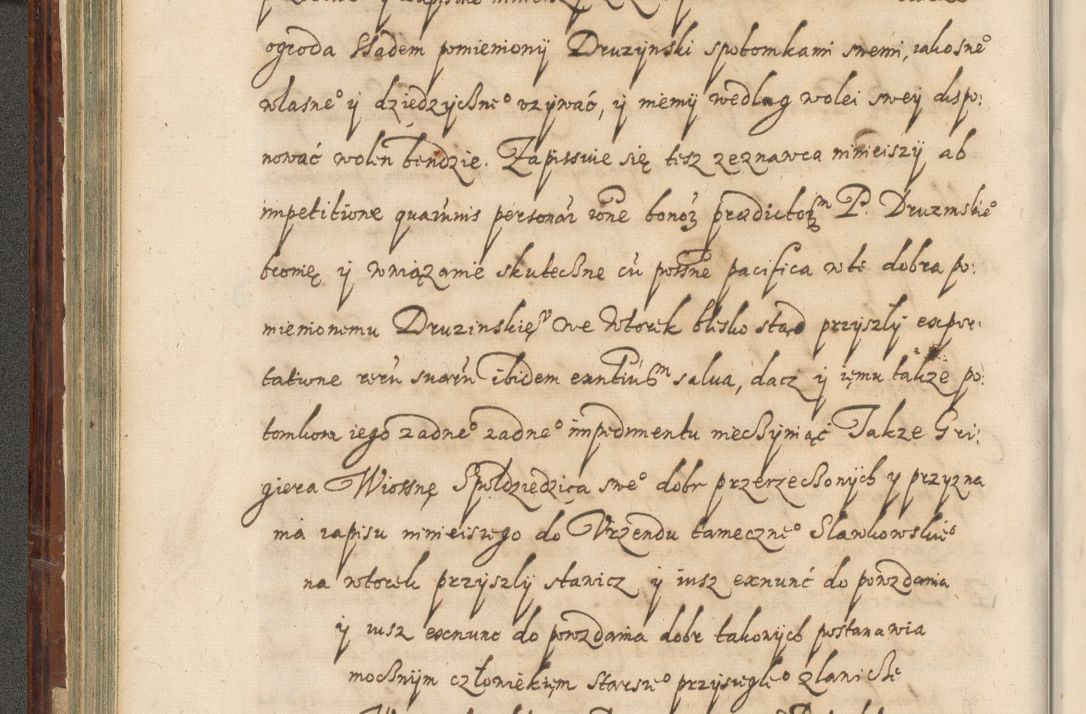 ogroda Sladem pomieniony Druzynski spotomkami swemi, iakosne°
wlasne° y dziedzyczne° vzywać, y niemy według wolei swey dispo:
nować wolen bendzie. Zapissuie się tesz zeznawca ninieiszy ab
impetitione quarumuis personar rone bonor praedictor P. Druzinskie°
bronię y wwiązanie skuteczne cu possne pacifica w te dobra po:
mienionemu Druzinskie we wtorek blisko stąd przyszły expor:
tatione reru suaru ibidem exntiu salua, dacz y iemu także po:
tomkora iego zadne° zadne° impedimentu nieczyniąc Takze Gri:
giera Wiossnę Społdziedzica swe° dobr przerzeczonych y przyzna
nia zapisu ninieiszego do Vrzendu tameczne° Slawkowskie°
na wtorek przyszly stanicz y iusz exnunc do powzdania
y iusz exnunc do powzdania dobr takowych postanawia
mocznym członiekiem starsze° przysiegle° z lawicze